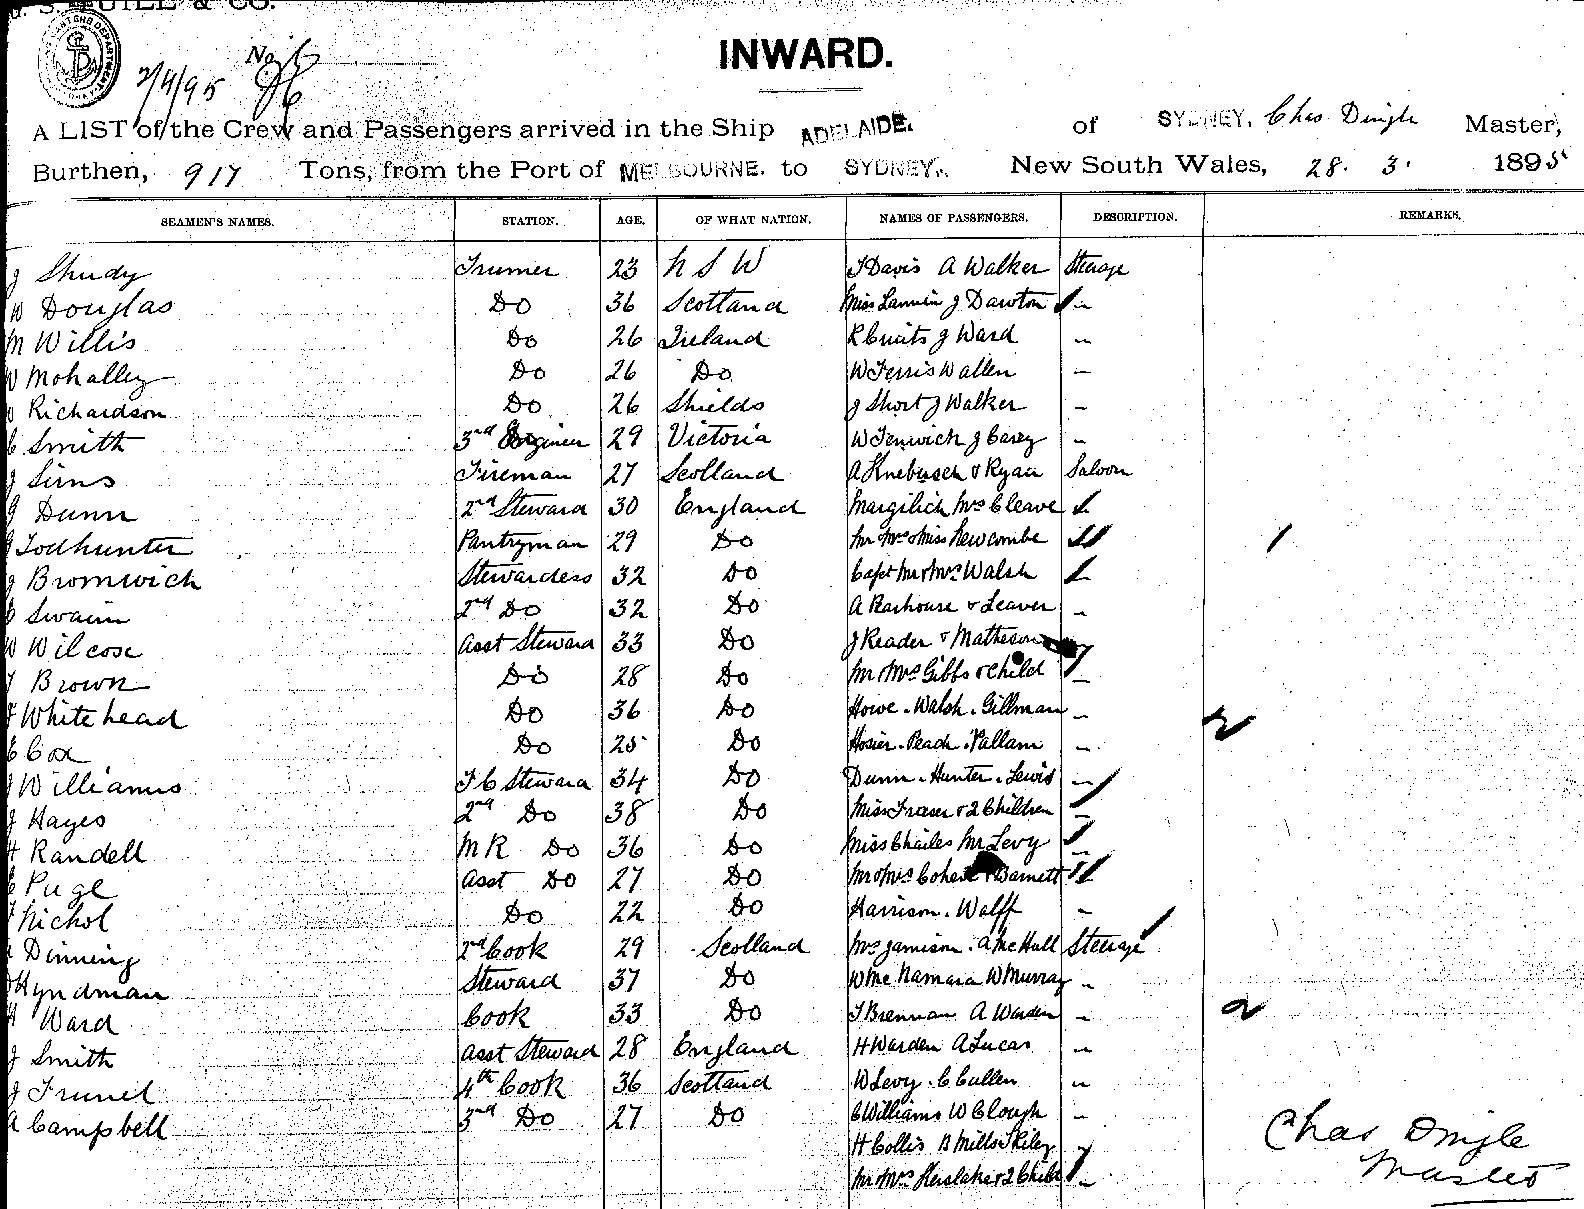 INWARD.
2/4/95 No
A LIST of the Crew and Passengers arrived in the Ship ADELAIDE. of SYDNEY, Chas Dingle Master,
Burthen, 917 Tons, from the Port of MELBOURNE. to SYDNEY. New South Wales, 28. 3. 1895
SEAMEN'S NAMES. STATION. AGE. OF WHAT NATION. NAMES OF PASSENGERS. DESCRIPTION. REMARKS.
J Shudy Trumer 23 N S W J Davis A Walker Steerage
W Douglas Do 36 Scotland Miss J Dawton
M Willis Do 26 Ireland J Ward
W Mohalley Do 26 Do W Ferris W allen
Richardson Do 26 Shields J Short J Walker
C Smith 3rd Engineer 29 Victoria W Fenwick J Carey
J Sims Fireman 27 Scotland A & Ryan Saloon
J Dunn 2nd Steward 30 England Mrs Cleave
Todhunter Pantryman 29 Do Mr Mrs & Miss Newcombe
J Bromwich Stewardess 32 Do Capt Mr & Mrs Walsh
C Swain 2nd Do 32 Do A & Leaver
W Wilcose Asst Steward 33 Do J Reader & Matheson
T Brown Do 28 Do Mr & Mrs Gibbs & Child
F Whitehead Do 36 Do Howe. Walsh. Gillman
C Cox Do 25 Do Hosier. Peach. Pallam
J Williams F C Steward 34 Do Dunn. Hunter. Lewis
J Hayes 2nd Do 38 Do Miss Fraser & 2 Children
H Randell M R Do 36 Do Miss Charles Mr Levy
C Page Asst Do 27 Do Mr & Mrs Cohen & Barnett
Nichol Do 22 Do Harrison. Walff
Dinning 2nd Cook 29 Scotland Mrs Jamison. A McHall Steerage
Hyndman Steward 37 Do W McNamara W Murray
Ward Cook 33 Do T Brennan A Warden
J Smith Asst Steward 28 England H Warden A Lucas
J Frunel 4th Cook 36 Scotland W Levy. C Cullen
A Campbell 3rd Do 27 Do C Williams W Clough
H Collis B Mills Riley
Mr & Mrs & 2 Child
Chas Dingle
Master